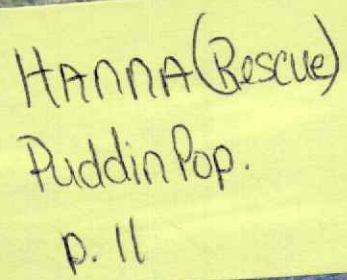 HANNA (Rescue)
Puddin Pop.
p. 11